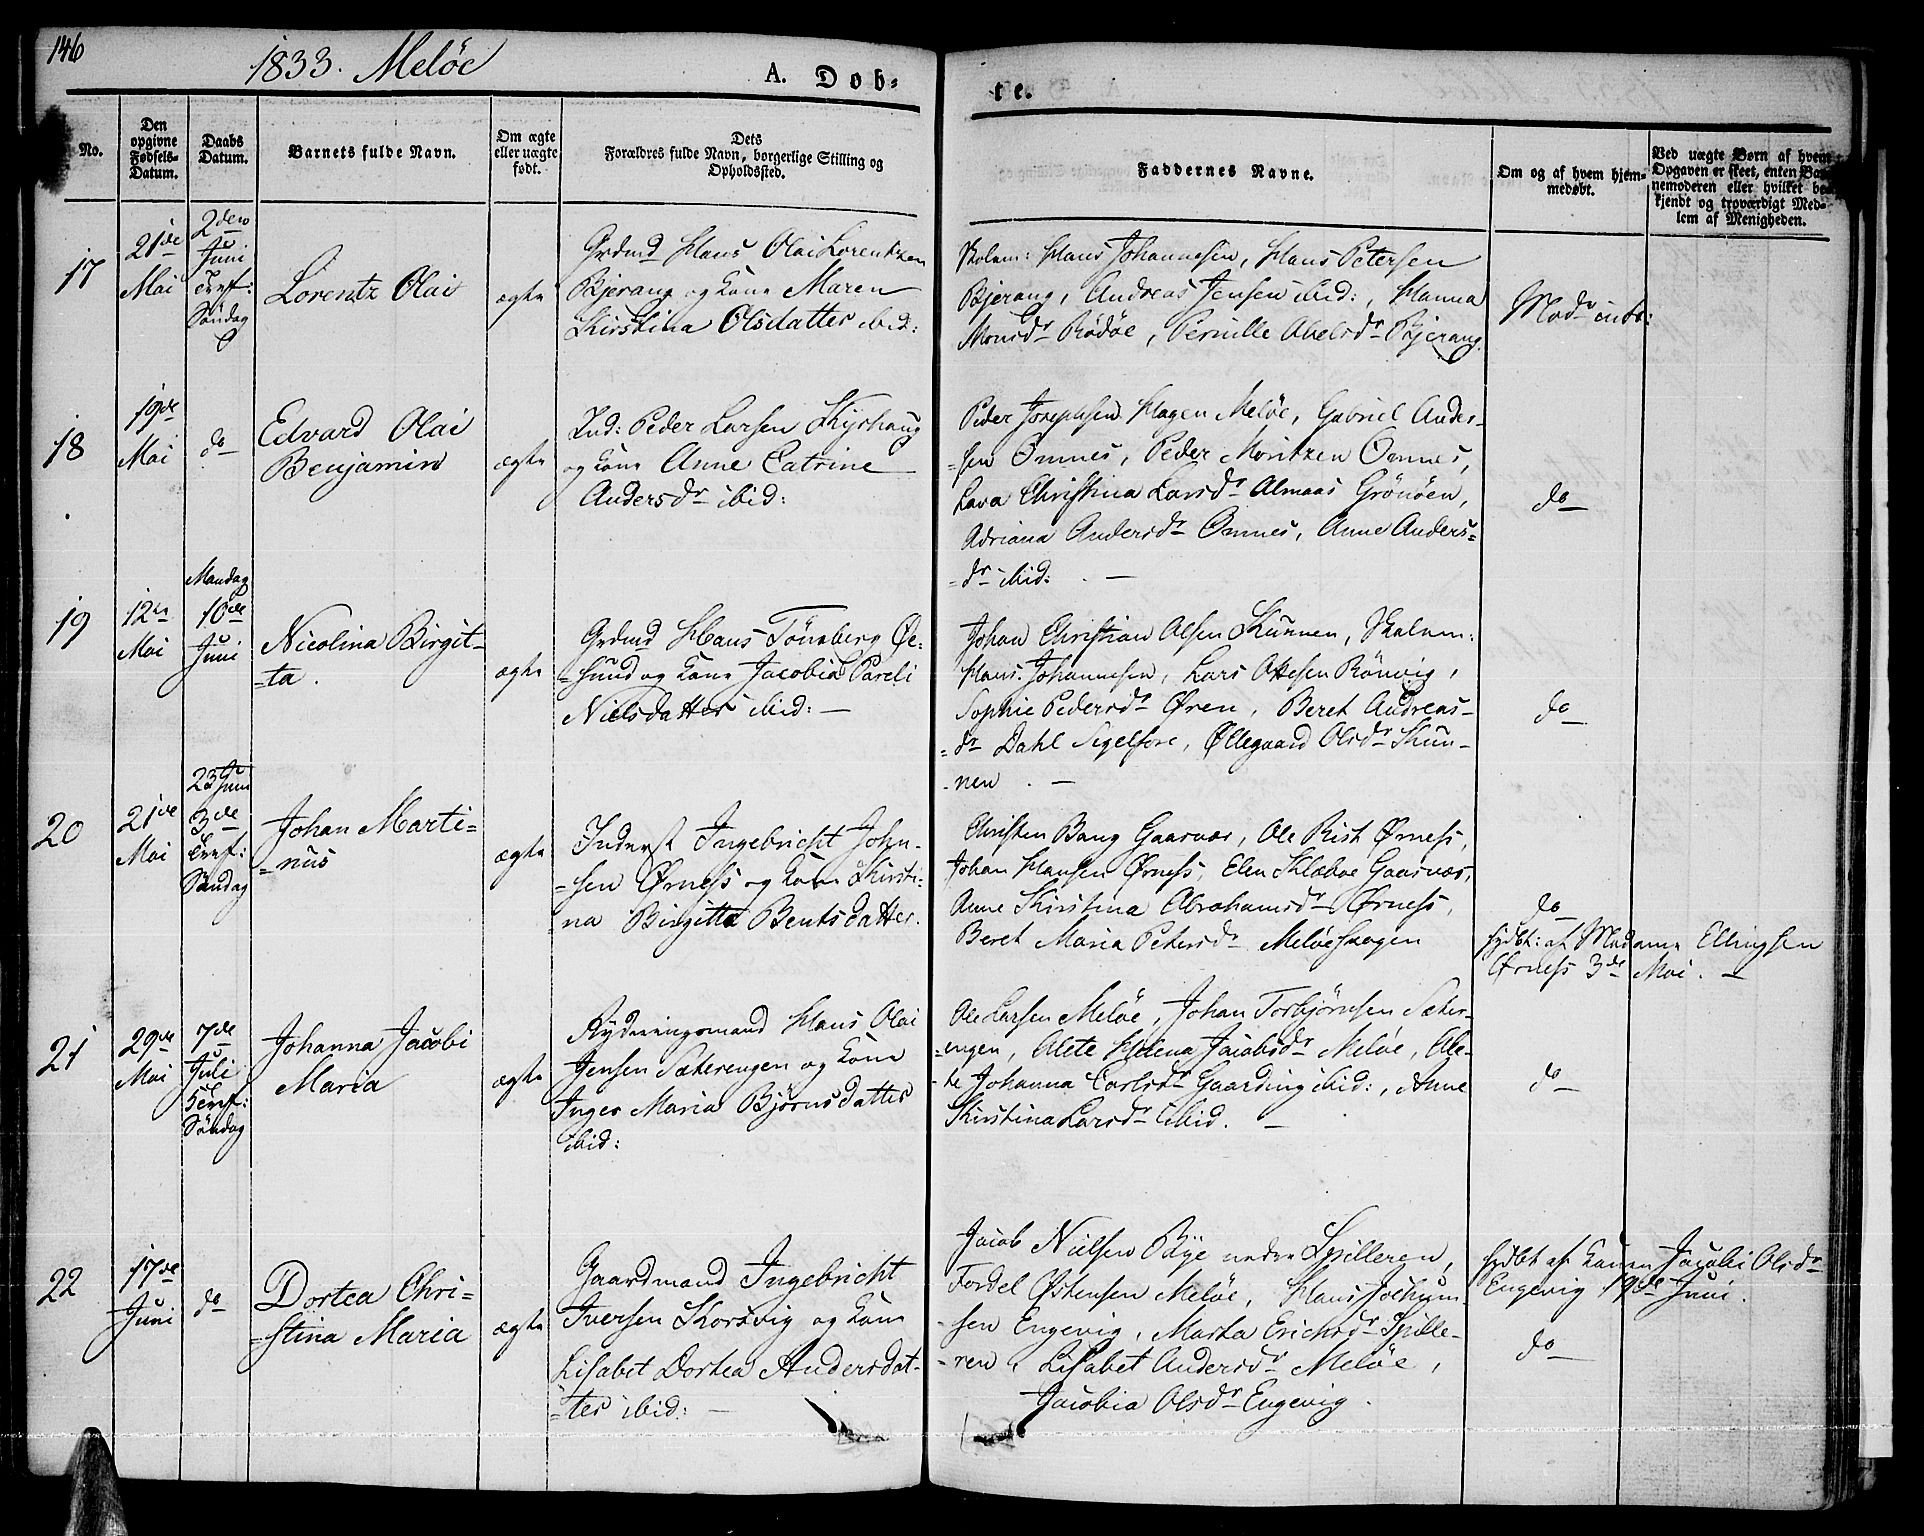 146
1833. Meløe
A. Døb-
te.
No.
Den opgivne Fødsels-Datum.
Daabs Datum.
Barnets fulde Navn.
Om ægte eller uægte født.
Dets Forældres fulde Navn, borgerlige Stilling og Opholdssted.
Faddernes Navne.
Om og af hvem hjem-medøbt.
Ved uægte Børn af hvem Opgaven er skeet, enten Barnemoderen eller hvilket bekjendt og troværdigt Medlem af Menigheden.
17
21de
Mai
2den
Juni
Tref:
Søndag
Lorentz Olai
ægte
Grdmd Hans Olai Lorentzen
Bjerang og Kone Maren
Kirstina Olsdatter ibid:
Skolem: Hans Johannesen, Hans Petersen
Bjerang, Andreas Jensen ibid:, Hanna
Monsdr Rødøe, Pernille Abelsdr Bjerang.
Modr intr:
18
19de
Mai
do
Edvard Olai
Benjamin
ægte
Ind: Peder Larsen Kyshaug
og Kone Anne Catrine
Andersdr ibid:
Peder Josephsen Hagen Meløe, Gabriel Ander-
-sen Omnes, Peder Moritzen Omnes,
Lava Christina Larsdr Almaas Grønøen,
Adriana Andersdr Omnes, Anne Anders-
-dr ibid: . —
do
19
12te
Mai
Mandag
10de
Juni
Nicolina Birgit-
-ta .
ægte
Grdmd Hans Tønsberg Øe-
-sund og Kone Jacobia Pareli
Nielsdatter ibid: —
Johan Christian Olsen Kunnen, Skolem:
Hans Johannesen, Lars Ottesen Rønvig,
Sophie Pedersdr Øren, Beret Andreas-
-dr Dahl Sigelfore, Øllegaard Olsdr Kun-
-nen . —
do
20
21de
Mai
23 Juni
3de
Tref:
Søndag
Johan Marti-
-nus
ægte
Inderst Ingebricht John-
-sen Ørness og Kone Kirsti-
-na Birgitta Bentsdatter.
Christen Bang Gaasvær, Ole Rist Ørness,
Johan Hansen Ørness, Elen Klæboe Gaasvær,
Anne Kirstina Abrahamsdr Ørness,
Beret Maria Petersdr Meløeskogen
do
hjdbt: af Madame Ellingsen
Ørness 3de Mai . —
21
29de
Mai
7de
Juli
5 tref:
Søndag
Johanna Jacobi
Maria
ægte
Rydningsmand Hans Olai
Jensen Sæterengen og Kone
Inger Maria Bjørnsdatter
ibid:
Ole Larsen Meløe, Johan Torbjørnsen Sæter-
-engen, Alete Helena Jacobsdr Meløe, Ole-
-te Johanna Carlsdr Gaarding ibid:, Anne
Kirstina Larsdr ibid. —
do
22
17de
Juni
do
Dortea Chri-
-stina Maria
ægte
Gaardmand Ingebricht
Iversen Korsvig og Kone
Lisabet Dortea Andersdat-
-ter ibid: —
Jacob Nielsen Bye nedre Spilleren,
Fordel Østensen Meløe, Hans Jochum-
-sen Engevig, Marta Erichsdr Spille-
-ren, Lisabet Andersdr Meløe,
Jacobia Olsdr Engevig.
hjdbt af Konen Jacobi Olsdr
Engevig 19de Juni.
do